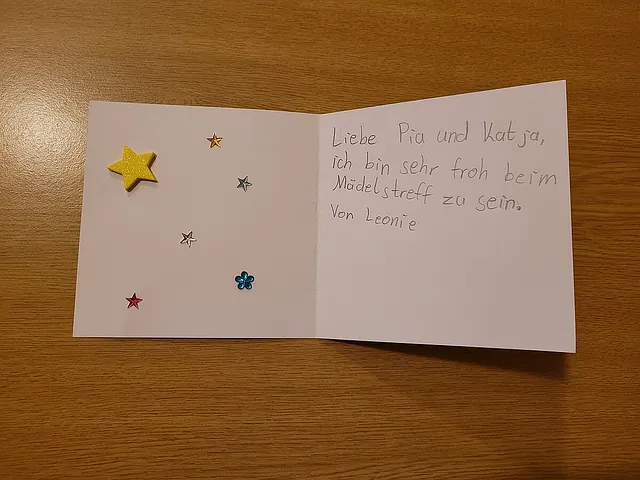 Liebe Pia und Katja,
ich bin sehr froh beim
Mädelstreff zu sein.
Von Leonie